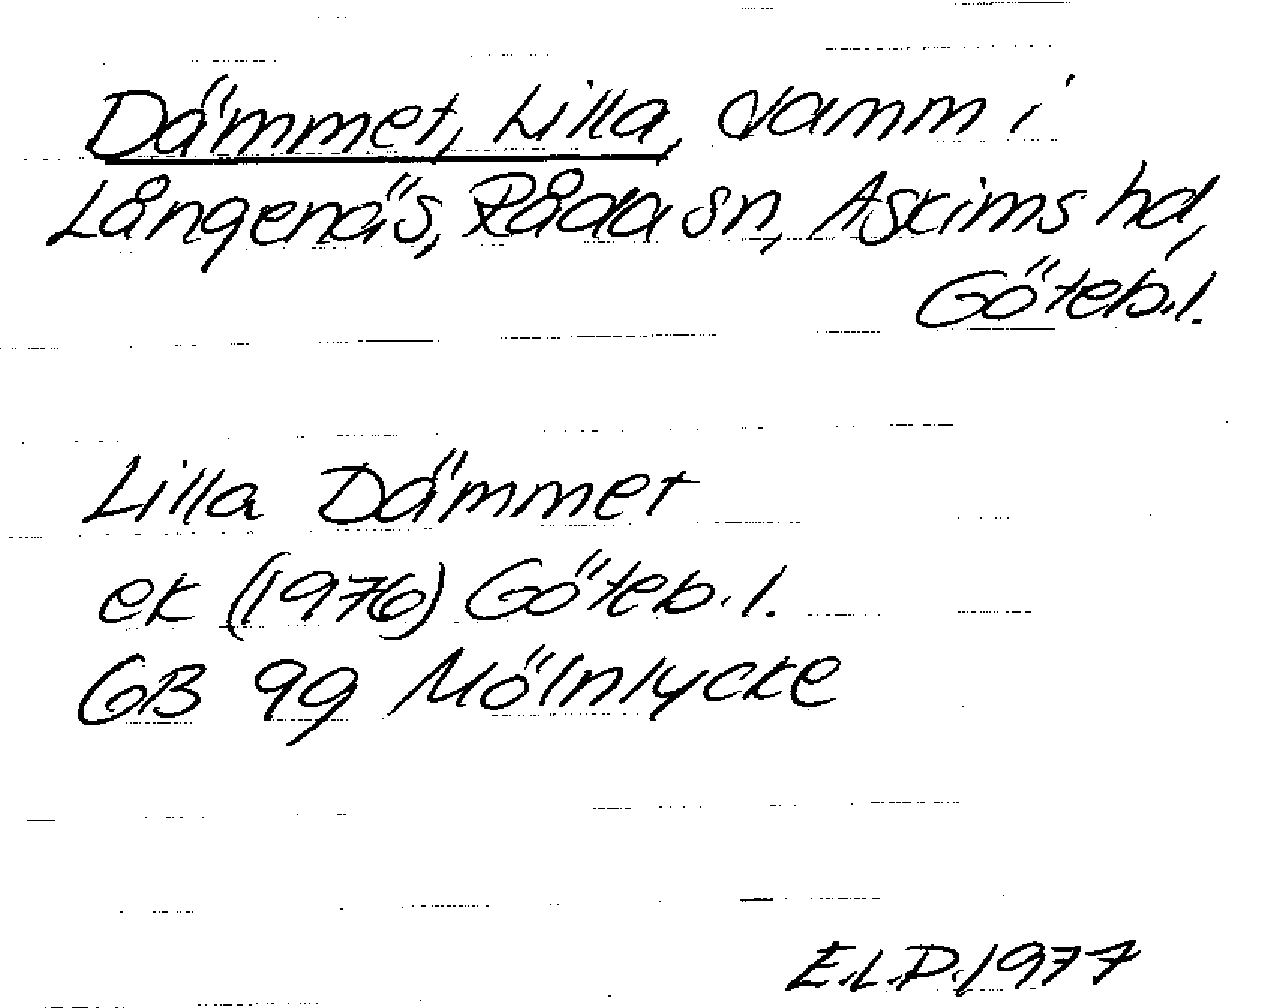 Dämmet, Lilla, damm i
Långenäs, Råda sn, Askims hd,
Göteb.l.
Lilla Dämmet
ek (1976) Göteb.l.
GB 99 Mölnlycke
E.L.D. 1977